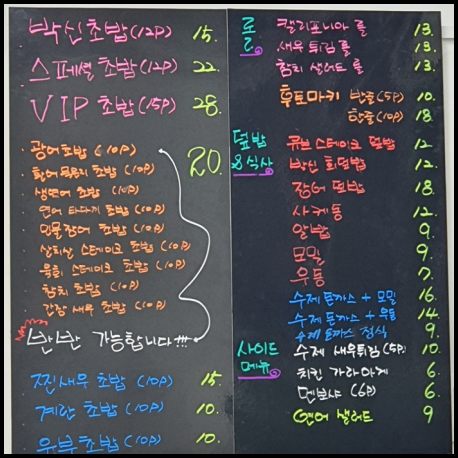 박신초밥(12P) 15.
스페셜 초밥(12P) 22.
VIP 초밥(15P) 28.
광어초밥(10P)
초밥(10P)
생연어 초밥(10P)
연어 타다끼 초밥(10P)
민물장어 초밥(10P)
삼치살 스테이크 초밥(10P)
육회 스테이크 초밥(10P)
참치 초밥(10P)
간장 새우 초밥(10P)
20.
반반 가능합니다!!!
찐새우 초밥(10P) 15.
계란 초밥(10P) 10.
유부초밥(10P) 10.
롤
캘리포니아 롤 13.
새우 튀김 롤 13.
참치 샐러드 롤 13.
후토마키 반줄(5P) 10.
한줄(10P) 18.
덮밥&식사
큐브 스테이크 덮밥 12.
박신 회덮밥 12.
장어 덮밥 18.
사케동 12.
알밥 9.
모밀 9.
우동 7.
수제 돈까스 + 모밀 16.
수제 돈까스 + 우동 14.
수제 돈까스 정식 9.
사이드 메뉴
수제 새우튀김(5P) 10.
치킨 가라아게 6.
멘보샤(6P) 6.
연어 샐러드 9